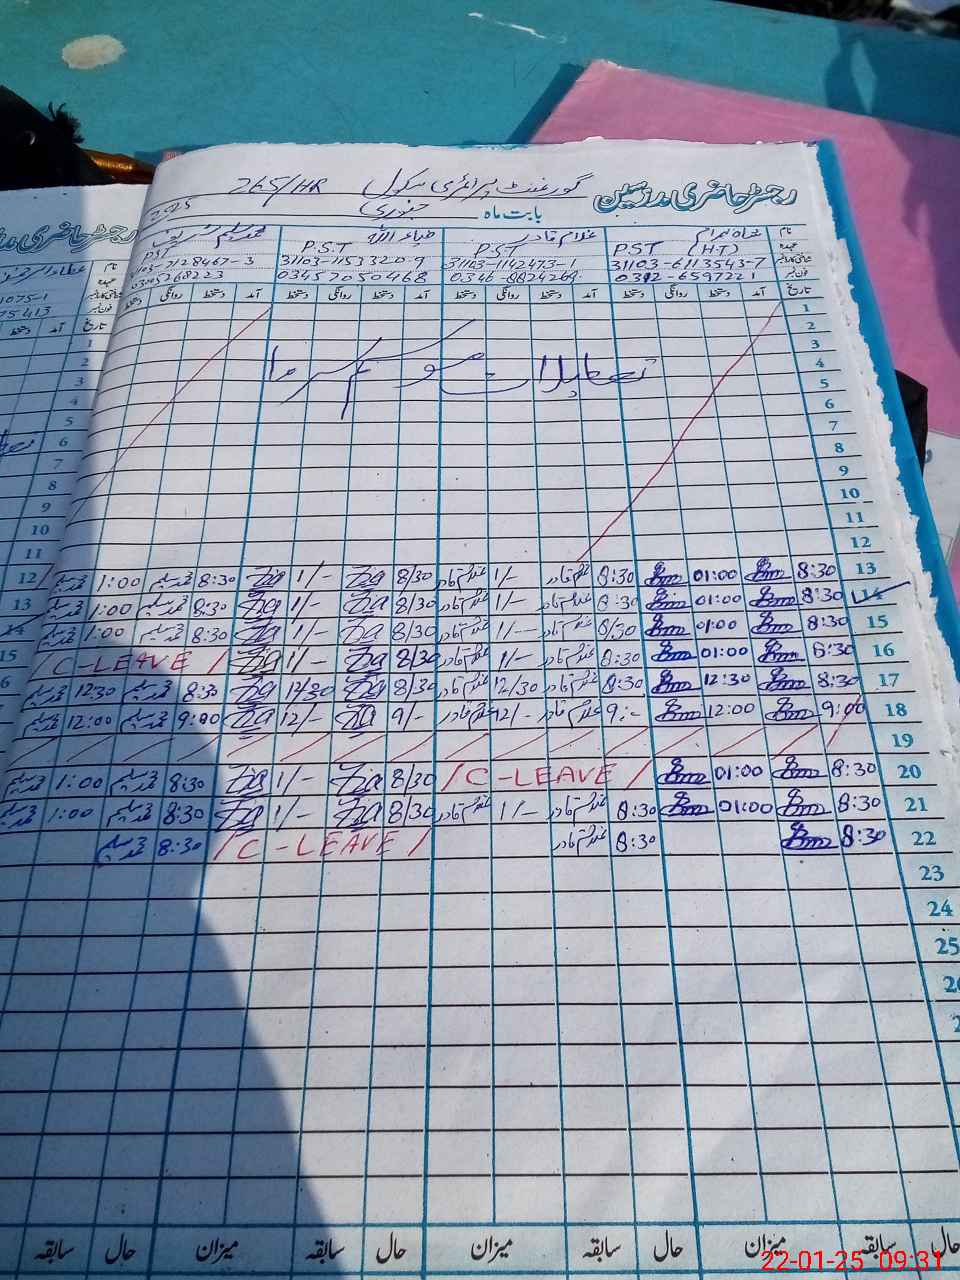 رجسٹر حاضری مدرسین گورنمنٹ پرائمری سکول 265/HR
بابت ماہ جنوری 2025
نام غلام قادر ضیاء اللہ محمد سلیم شریف
عہدہ PST (H.T) PST P.S.T PST
شناختی کارڈ نمبر 31103-6113543-7 31103-1142473-1 31103-1153320-9
فون نمبر 0312-6597221 0346-8824269 03457050468
تاریخ آمد دستخط روانگی دستخط آمد دستخط روانگی دستخط آمد دستخط روانگی دستخط آمد دستخط روانگی دستخط
1
2
3
تعطیلات موسم سرما
4
5
6
7
8
9
10
11
12
13 8:30 01:00 8:30 غلام قادر 1/- غلام قادر 8/30 Zia 1/- Zia 8:30 محمد سلیم 1:00 محمد سلیم
14 8:30 01:00 8:30 غلام قادر 1/- غلام قادر 8/30 Zia 1/- Zia 8:30 محمد سلیم 1:00 محمد سلیم
15 8:30 01:00 8/30 غلام قادر 1/- غلام قادر 8/30 Zia 1/- Zia 8:30 محمد سلیم 1:00 محمد سلیم
16 8:30 01:00 8:30 غلام قادر 1/- غلام قادر 8/30 Zia 1/- Zia / C-LEAVE /
17 8:30 12:30 8:30 غلام قادر 12/30 غلام قادر 8/30 Zia 12/30 Zia 8:30 محمد سلیم 12:30 محمد سلیم
18 9:00 12:00 9:- غلام قادر 12/- غلام قادر 9/- Zia 12/- Zia 9:00 محمد سلیم 12:00 محمد سلیم
19
20 8:30 01:00 / C-LEAVE / 8/30 Zia 1/- Zia 8:30 محمد سلیم 1:00 محمد سلیم
21 8:30 01:00 8:30 غلام قادر 1/- غلام قادر 8/30 Zia 1/- Zia 8:30 محمد سلیم 1:00 محمد سلیم
22 8:30 8:30 غلام قادر / C-LEAVE / 8:30 محمد سلیم
23
24
25
حال سابقہ میزان حال سابقہ میزان حال سابقہ میزان حال سابقہ
رجسٹر حاضری
نام
عہدہ
شناختی کارڈ نمبر 1075-1
فون نمبر 75413
تاریخ آمد دستخط
1
2
3
4
5
6
7
8
9
10
11
12
13
14
15
22-01-25 09:31